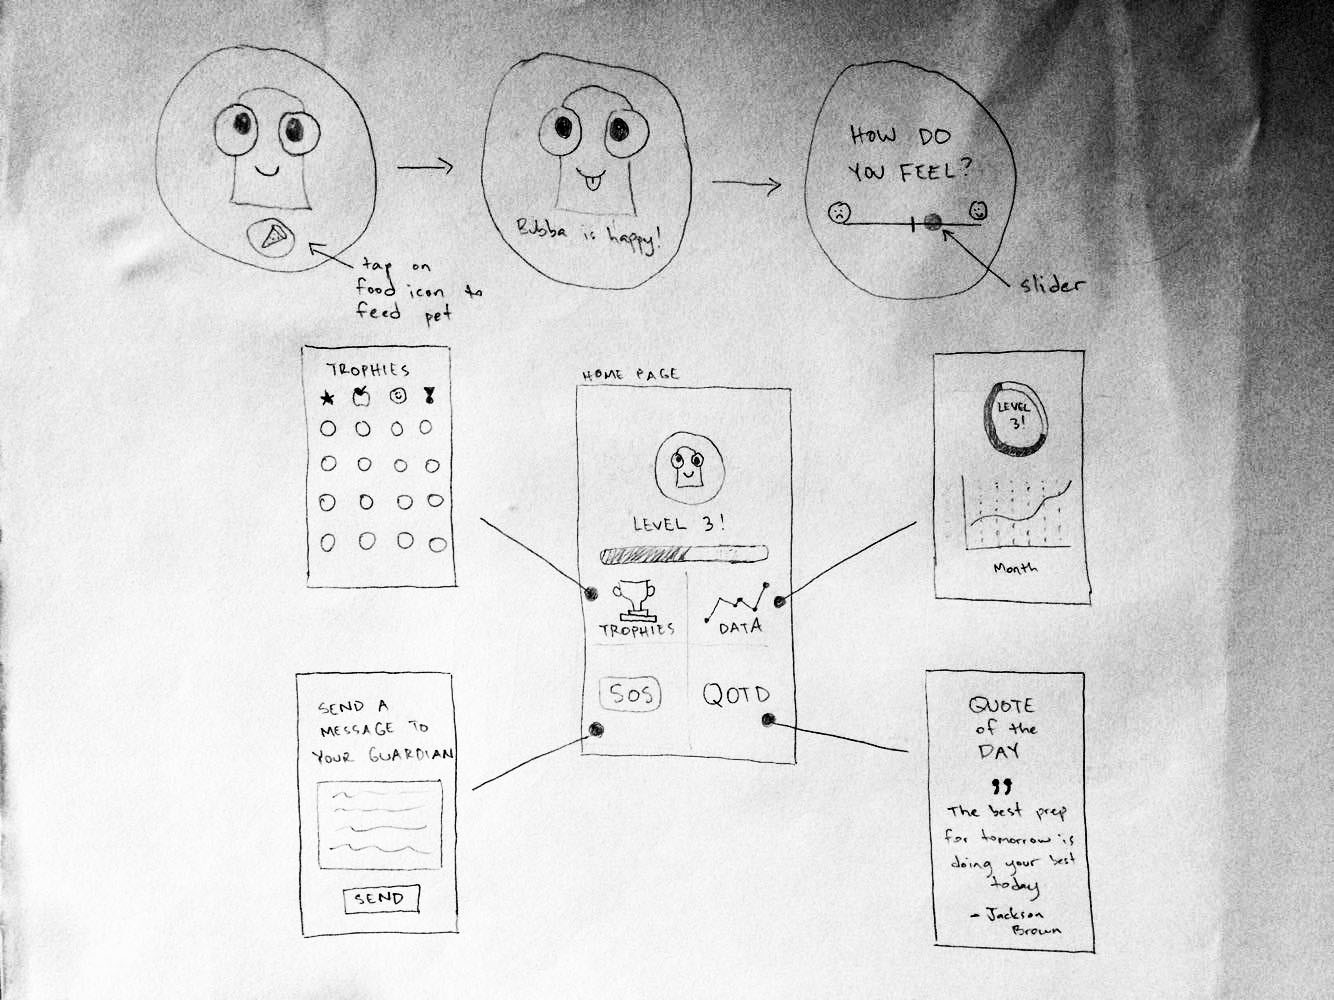 Bubba is happy!
HOW DO
YOU FEEL?
tap on
food icon to
feed pet
slider
TROPHIES
HOME PAGE
LEVEL 3!
TROPHIES
DATA
SOS
QOTD
LEVEL
3!
Month
SEND A
MESSAGE TO
YOUR GUARDIAN
SEND
QUOTE
of the
DAY
"
The best prep
for tomorrow is
doing your best
today
- Jackson
Brown